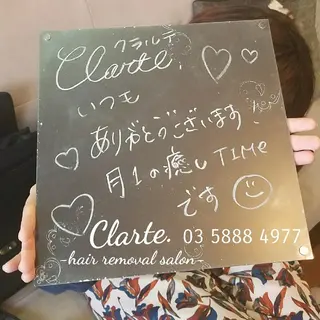 クラルテ
Clarte.
いつも
ありがとうございます。
月1の癒しTIMe
です
Clarte. 03 5888 4977
-hair removal salon-